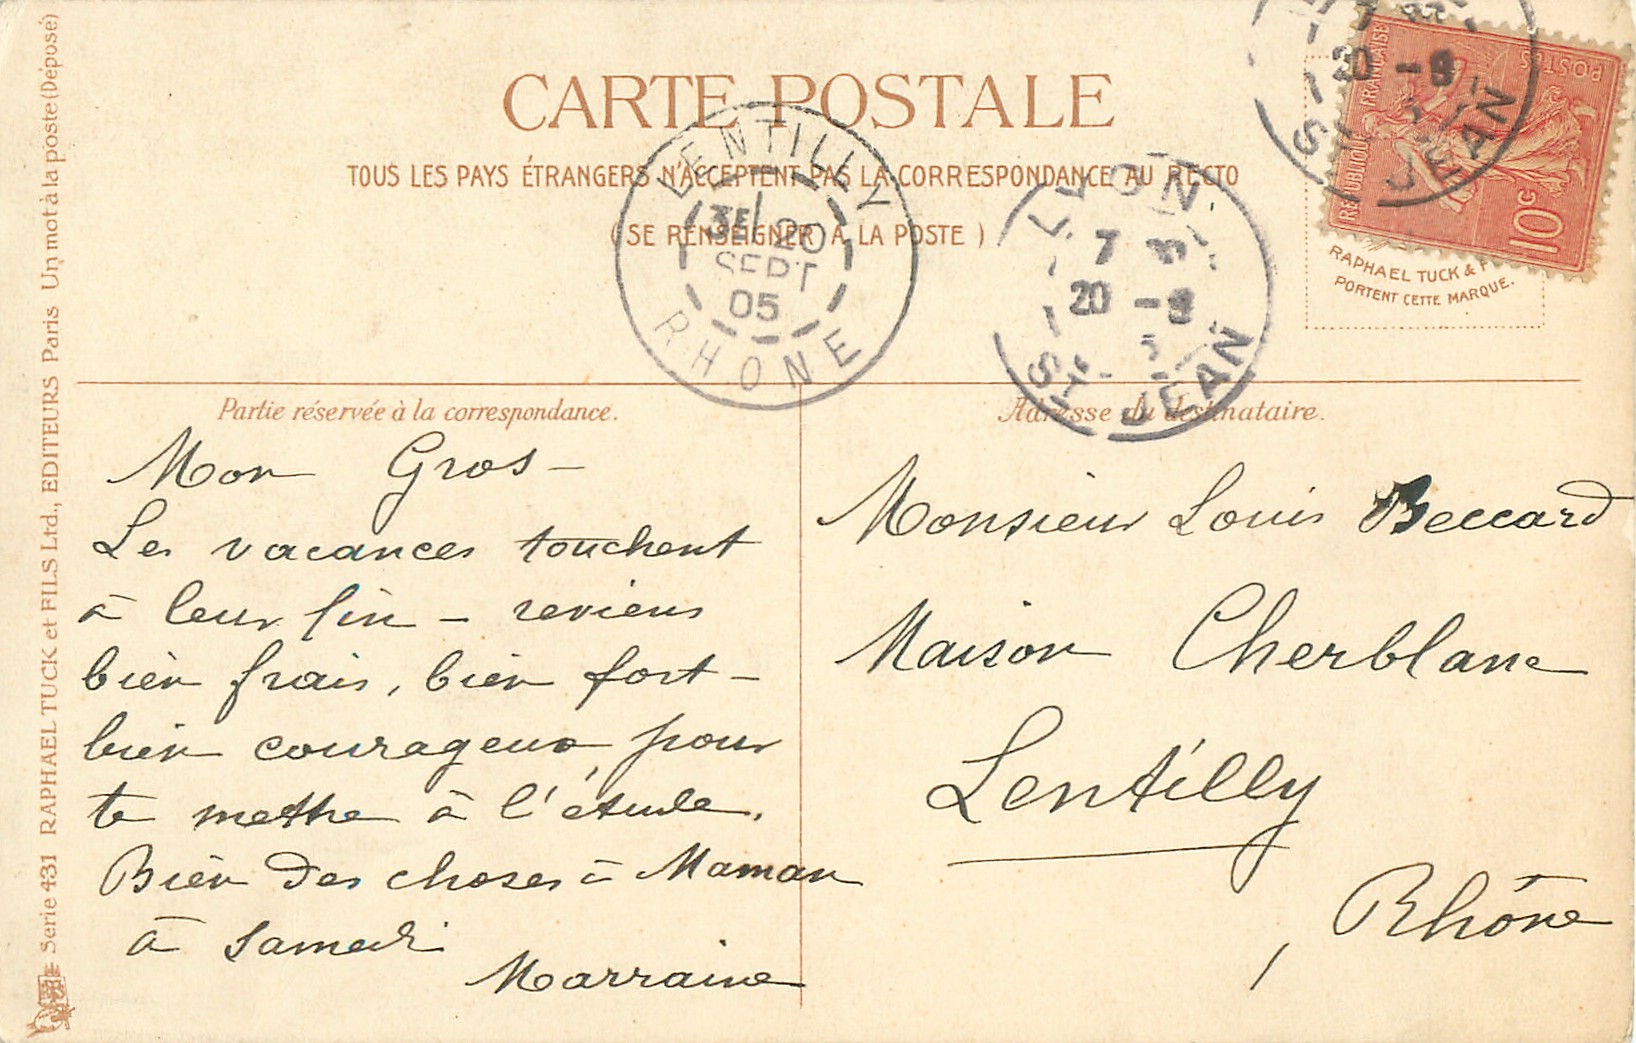 CARTE POSTALE
TOUS LES PAYS ÉTRANGERS N'ACCEPTENT PAS LA CORRESPONDANCE AU RECTO
(SE RENSEIGNER A LA POSTE)
LENTILLY
3E 20
SEPT
05
RHONE
LYON
7
20 -9
ST JEAN
7
20 -9
ST JEAN
REPUBLIQUE FRANCAISE
POSTES
10c
RAPHAEL TUCK & F
PORTENT CETTE MARQUE.
Partie réservée à la correspondance.
Mon Gros –
Les vacances touchent
à leur fin – reviens
bien frais, bien fort –
bien courageux, pour
te metthe à l'étude.
Bien des choses à Maman
à samedi
Marraine
Adresse du destinataire.
Monsieur Louis Beccard
Maison Cherblanc
Lentilly
Rhône
Serie 431 RAPHAEL TUCK et FILS Ltd., EDITEURS Paris Un mot à la poste (Déposé)